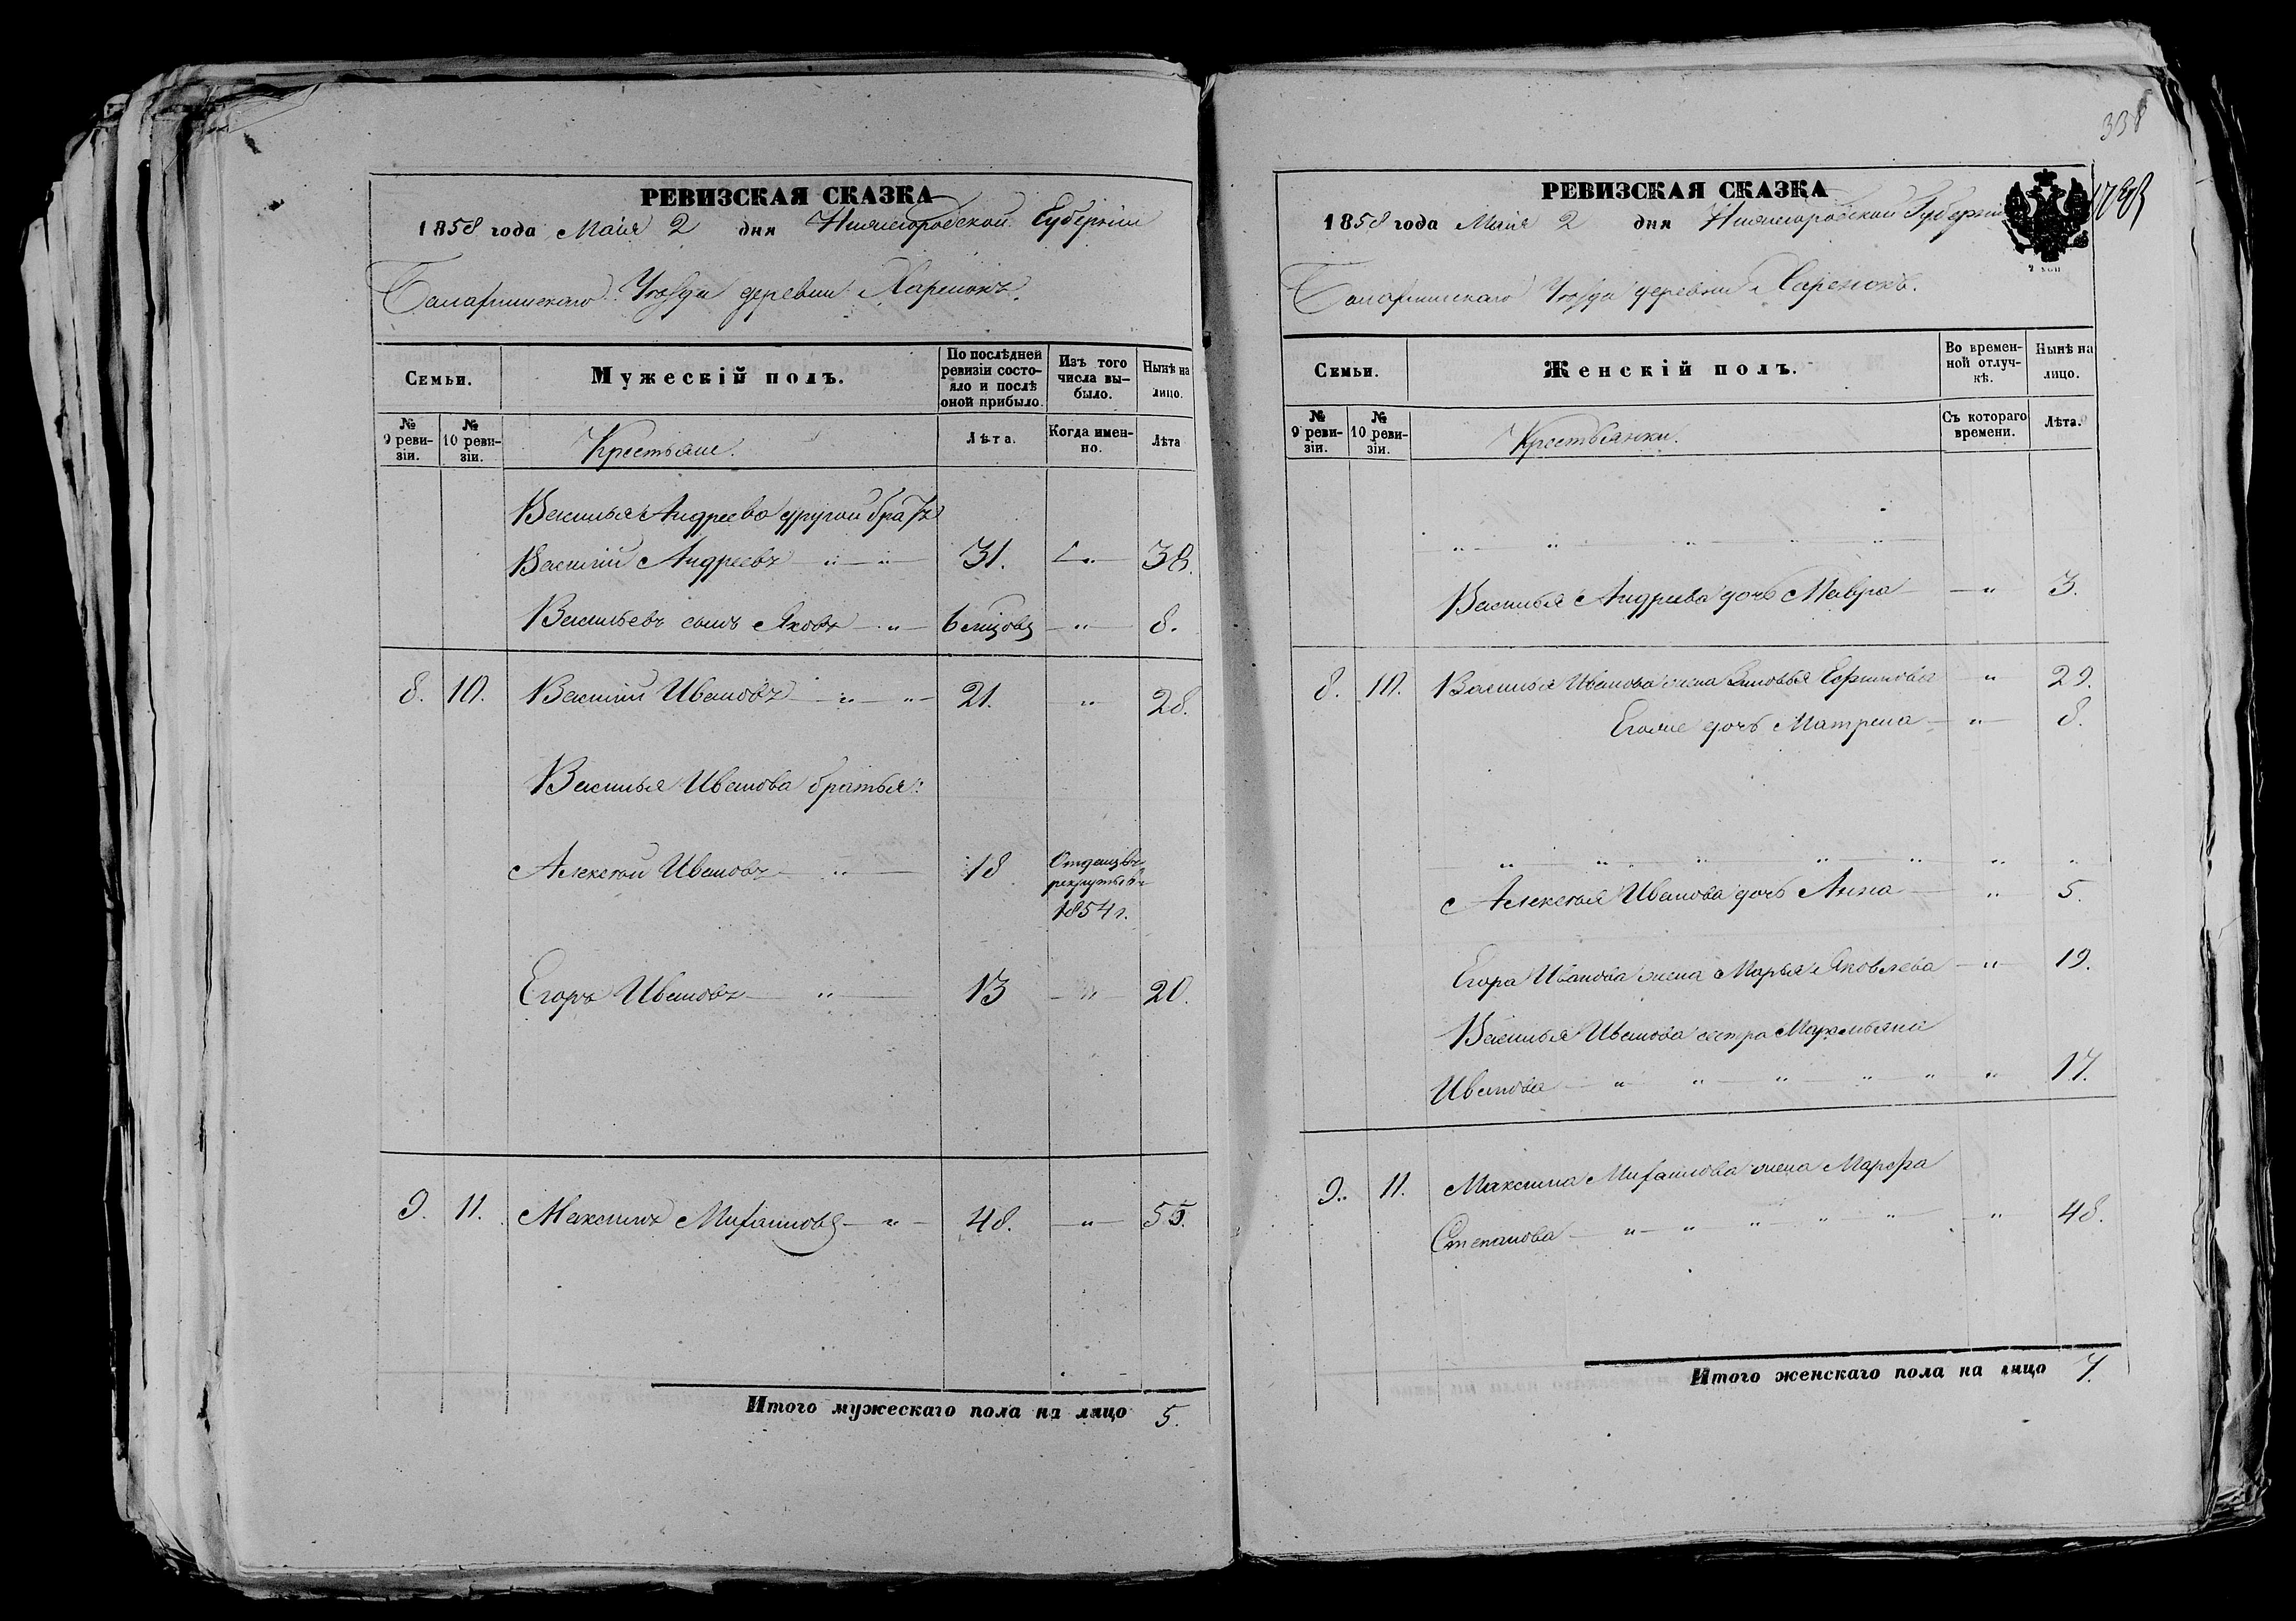 РЕВИЗСКАЯ СКАЗКА
1858 года Маія 2 дня Нижегородской Губерніи
Балахнинскаго Уѣзда деревни
Семьи.
Мужескій полъ.
По послѣдней ревизіи состояло и послѣ оной прибыло.
Изъ того числа выбыло.
Нынѣ на лицо.
№ 9 ревизіи.
№ 10 ревизіи.
Крестьяне.
Лѣта.
Когда именно.
Лѣта
Василья Андреева другой братъ
Василій Андреевъ 31. 38.
Васильевъ сынъ Яковъ 8.
8. 10. Василій Ивановъ 21. 28.
Василья Иванова братья:
Алексѣй Ивановъ 18 Отданъ въ
рекруты въ
1854 г.
Егоръ Ивановъ 13 20.
9. 11. Максимъ Михайловъ 48. 55.
Итого мужескаго пола на лицо 5.
338
РЕВИЗСКАЯ СКАЗКА
1858 года Маія 2 дня Нижегородской Губерніи
Балахнинскаго Уѣзда деревни
Семьи.
Женскій полъ.
Во временной отлучкѣ.
Нынѣ на лицо.
№ 9 ревизіи.
№ 10 ревизіи.
Крестьянки.
Съ котораго времени.
Лѣта.
Василья Андреева дочь Мавра 3.
8. 10. Василья Иванова жена 29.
Егоже дочь Матрена 8.
Алексѣя Иванова дочь Анна 5.
Егора Иванова жена Марья Яковлева 19.
Василья Иванова сестра
Иванова 17.
9. 11. Максима Михайлова жена Марфа
Степанова 48.
Итого женскаго пола на лицо 7.